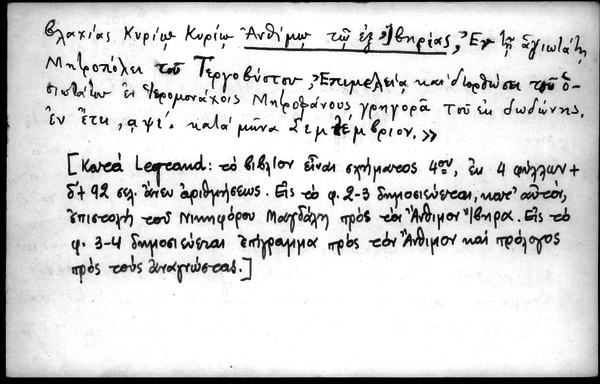 βλαχίας Κυρίῳ Κυρίῳ Ἀνθίμῳ τῷ ἐξ Ἰβηρίας, Ἐν τῇ ἁγιωτάτῃ
Μητροπόλει τοῦ Τεργοβύστου, Ἐπιμελείᾳ καὶ διορθώσει τοῦ ὁ-
σιωτάτου ἐν Ἱερομονάχοις Μητροφάνους γρηγορᾶ τοῦ ἐκ δωδώνης.
Ἐν ἔτει, ͵αψί. κατὰ μῆνα Σεπτέμβριον.»
[Κατὰ Legrand: τὸ βιβλίον εἶναι σχήματος 4ου, ἐκ 4 φύλλων +
δ΄+ 92 σελ. ἄνευ ἀριθμήσεως. Εἰς τὸ φ. 2-3 δημοσιεύεται, κατ' αὐτόν,
ἐπιστολὴ τοῦ Νικηφόρου Μαγδάλη πρὸς τὸν Ἄνθιμον Ἴβηρα. Εἰς τὸ
φ. 3-4 δημοσιεύεται ἐπίγραμμα πρὸς τὸν Ἄνθιμον καὶ πρόλογος
πρὸς τοὺς ἀναγνώστας.]